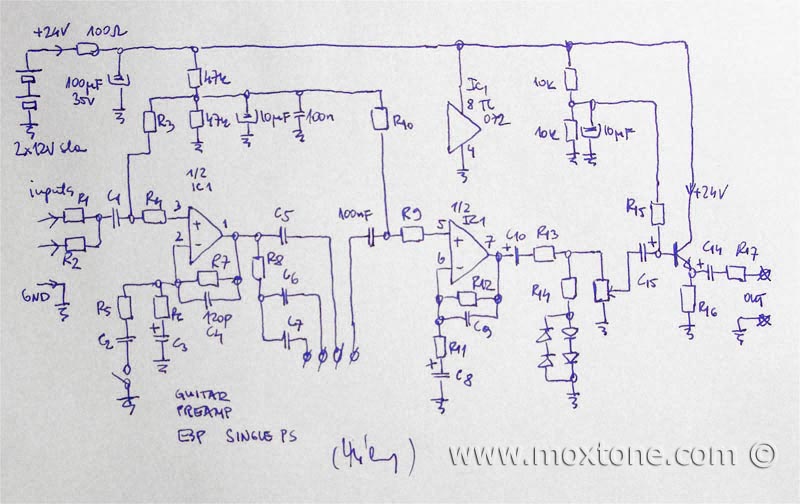 +24V 100Ω
100µF
35V
2x12V sla
47k
47k
R3
10µF
100n
R10
IC1
8 TL
072
4
10k
10k
10µF
+24V
inputs
R1
R2
C1
R4
1/2
IC1
3
2
1
C5
R8
C6
C7
R7
120p
C4
GND
R5
C2
C3
100nF
R9
1/2
IC1
5
6
7
C10
R13
R12
C9
R11
C8
R14
R15
C15
C14
R17
R16
OUT
GUITAR
PREAMP
EBP SINGLE PS
www.moxtone.com ©